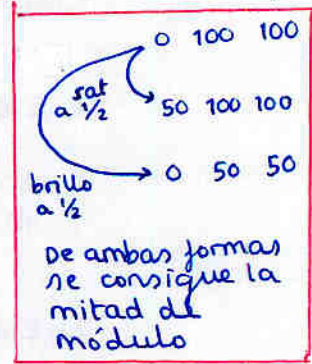 0 100 100
sat
a 1/2
50 100 100
0 50 50
brillo
a 1/2
De ambas formas
se consigue la
mitad de
módulo